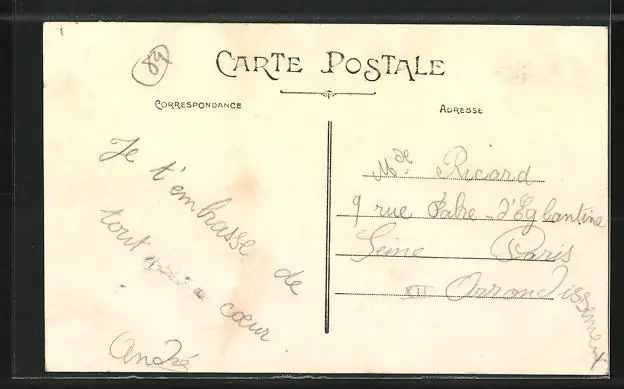 89
CARTE POSTALE
CORRESPONDANCE
ADRESSE
Je t'embrasse de
tout coeur
André
Me Ricard
9 rue Fabre-d'Eglantine
Seine Paris
XII Orrondissement